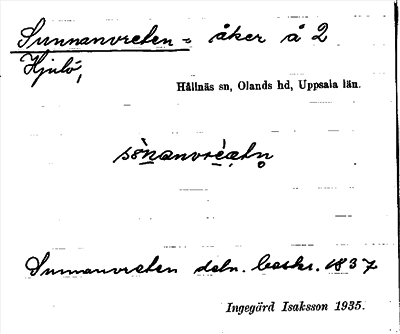 Sunnanvreten = åker å 2
Hjulö,
Hållnäs sn, Olands hd, Uppsala län.
Sunnanvreten deln. beskr. 1837
Ingegärd Isaksson 1935.